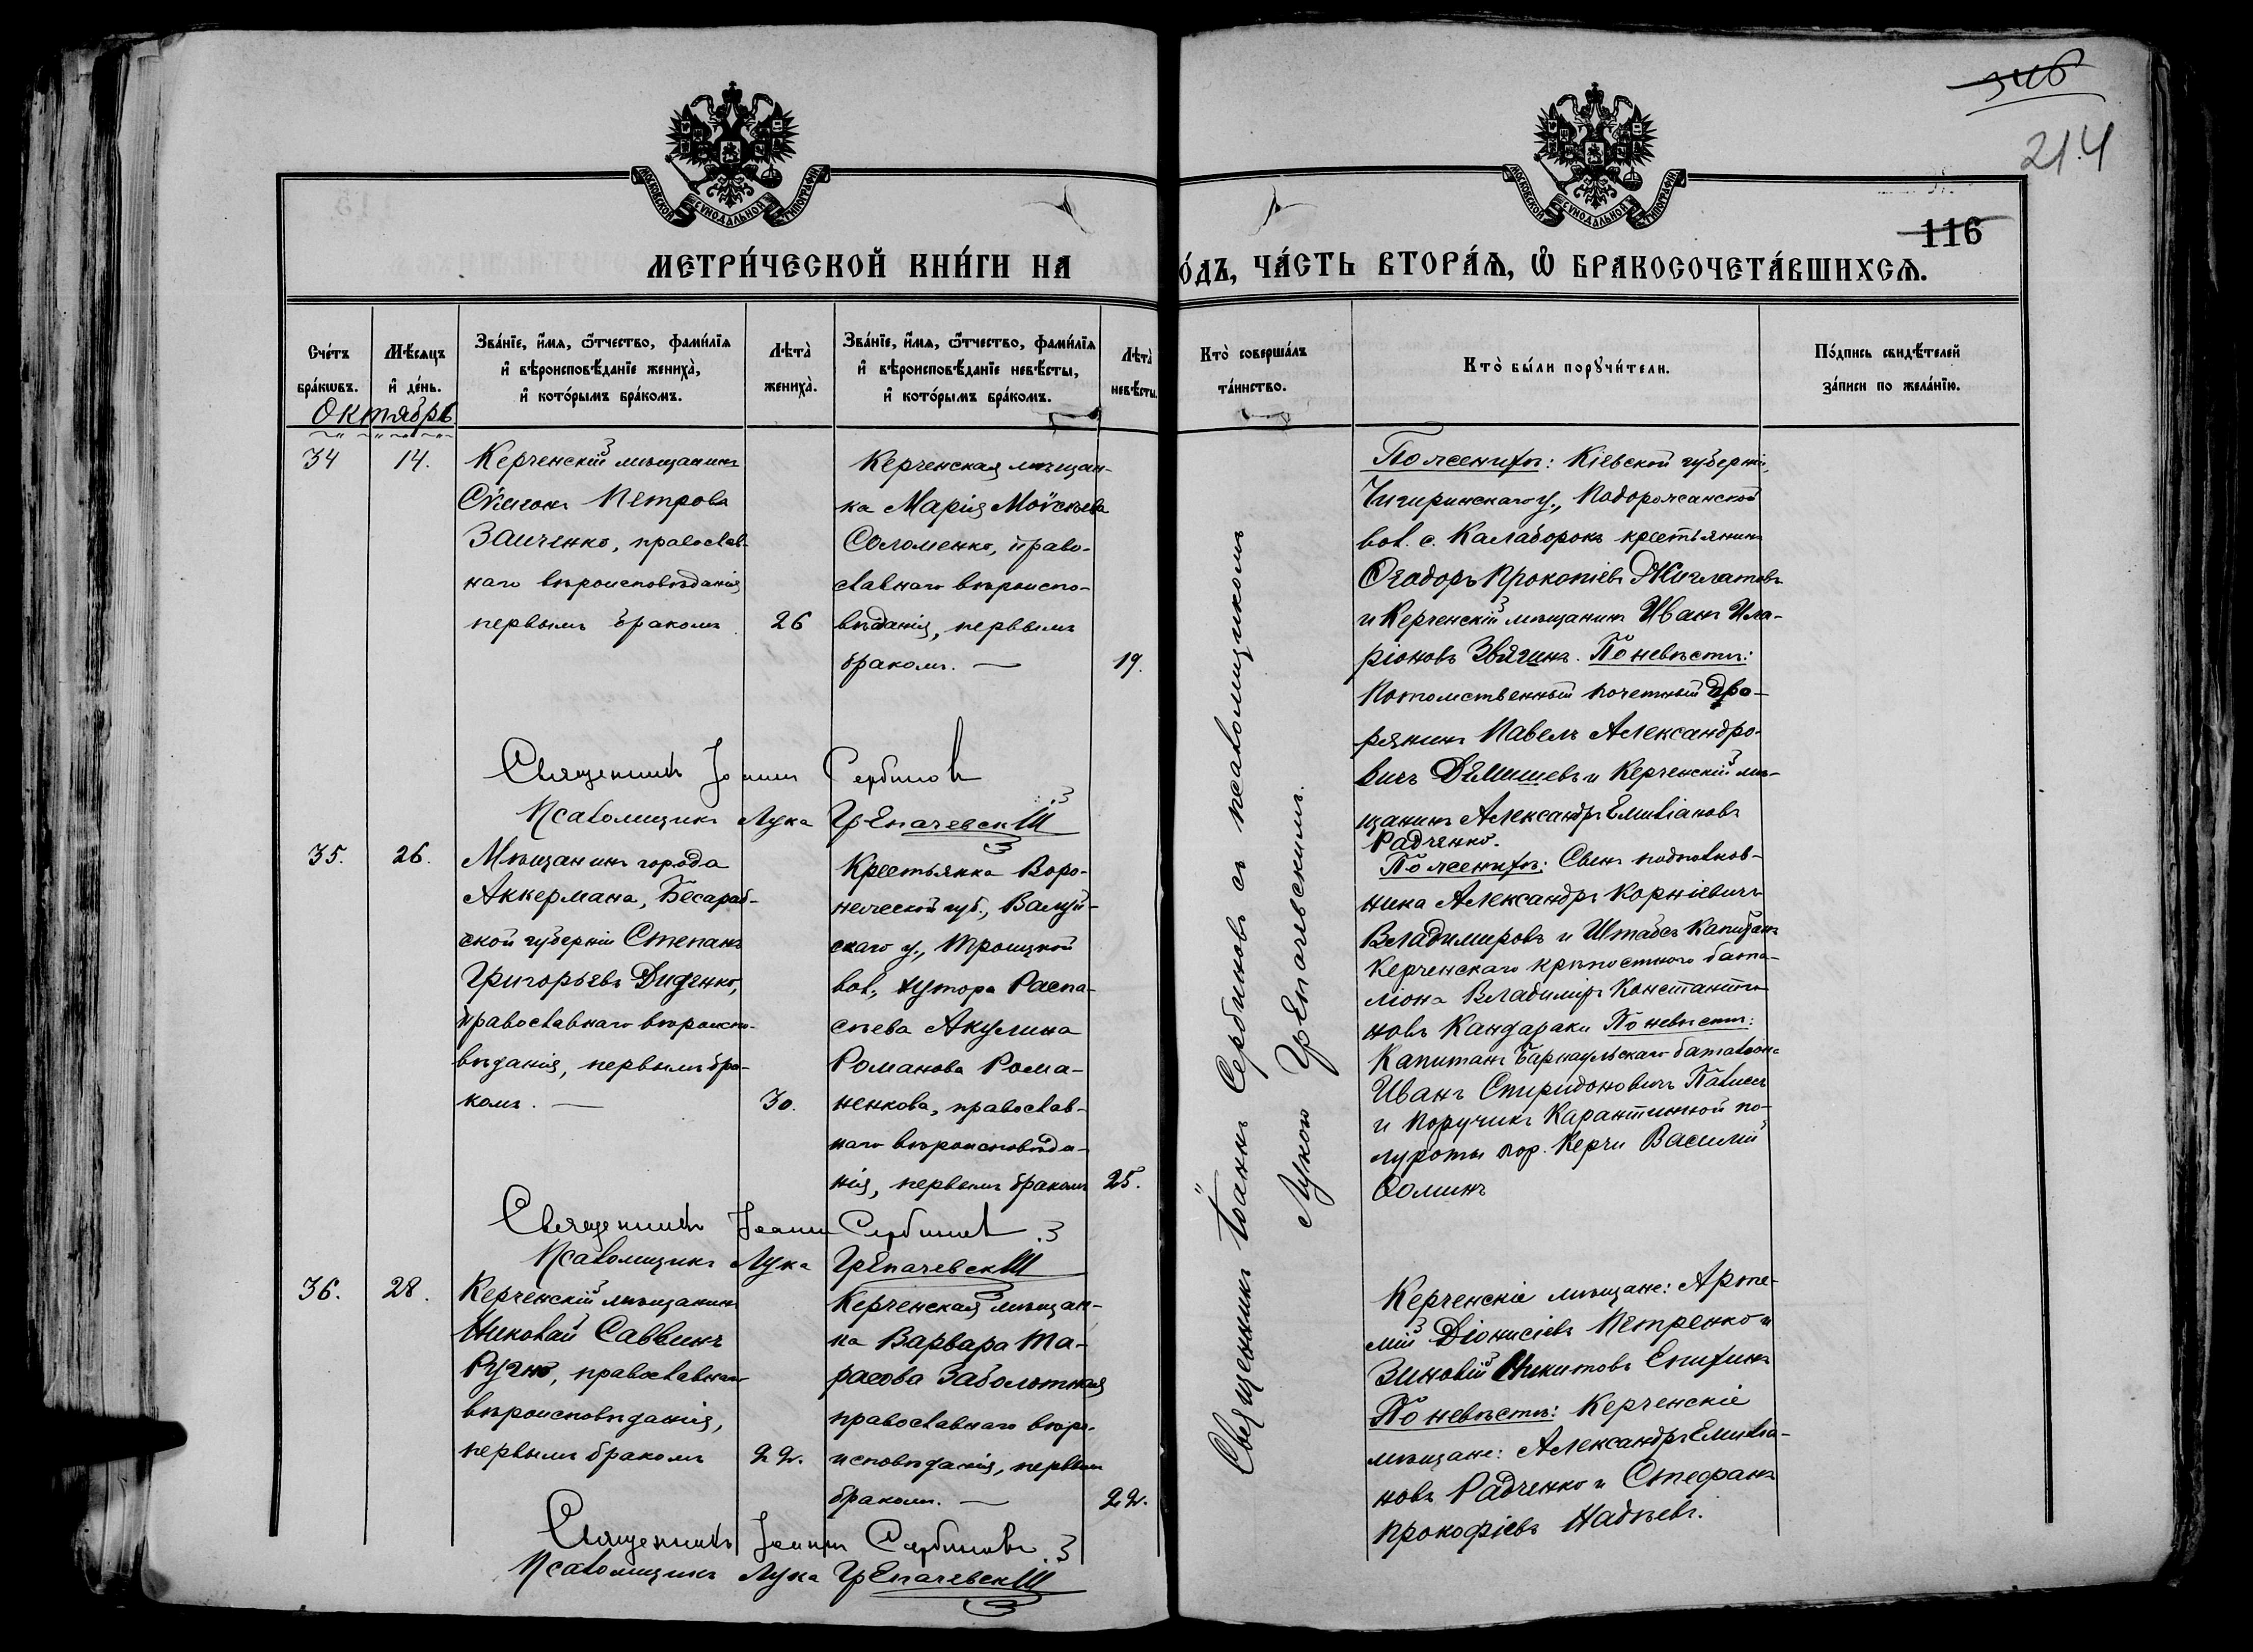 346
214
116
МОСКОВСКОЙ СѴНОДАЛЬНОЙ ТИПОГРАФІИ
МОСКОВСКОЙ СѴНОДАЛЬНОЙ ТИПОГРАФІИ
МЕТРИ́ЧЕСКОЙ КНИ́ГИ НА
О́ДЪ, ЧА́СТЬ ВТОРА́Ѧ, Ѽ БРАКОСОЧЕТА́ВШИХСѦ.
Сче́тъ бра́кѡвъ.
Мѣ́сѧцъ и҆ де́нь.
Зва́нїе, и҆́мѧ, ѻ҆́тчество, фами́лїѧ и҆ вѣроисповѣ́данїе жениха̀, и҆ кото́рымъ бра́комъ.
Лѣта̀ жениха̀.
Зва́нїе, и҆́мѧ, ѻ҆́тчество, фами́лїѧ и҆ вѣроисповѣ́данїе невѣ́сты, и҆ кото́рымъ бра́комъ.
Лѣта̀ невѣ́сты.
Кто̀ соверша́лъ та́инство.
Кто̀ бы́ли порꙋчи́тели.
По́дпись свидѣ́телей за́писи по жела́нїю.
Октябрь.
34
14.
Керченскій мѣщанинъ
Сѵмеонъ Петровъ
Заиченко, православ-
наго вѣроисповѣданія
первымъ бракомъ
26
Керченская мѣщан-
ка Марія Моѵсѣева
Соломенко, право-
славнаго вѣроиспо-
вѣданія, первымъ
бракомъ. —
19.
По женихѣ: Кіевской губерніи,
Чигиринскаго у., Подорожанской
вол. с. Калаборокъ крестьянинъ
Ѳеодоръ Прокопіевъ
и Керченскій мѣщанинъ Иванъ Ила-
ріоновъ Звягинъ. По невѣстѣ:
Потомственный почетный Дво-
рянинъ Павелъ Александро-
вичъ и Керченскій мѣ-
щанинъ Александръ Емиліановъ
Радченко.
Священникъ Іоаннъ Сербиновъ
Псаломщикъ Лука Грепачевскій
35.
26.
Мѣщанинъ города
Аккермана, Бесараб-
ской губерніи Степанъ
Григорьевъ Диденко,
православнаго вѣроиспо-
вѣданія, первымъ бра-
комъ. —
30.
Крестьянка Воро-
нежской губ., Валуй-
скаго у., Троицкой
вол., хутора Распа-
сѣева Акулина
Романова Рома-
ненкова, православ-
наго вѣроисповѣда-
нія, первымъ бракомъ
25.
По женихѣ: Сынъ подполков-
ника Александръ Корніевичъ
Владимировъ и Штабсъ Капитанъ
Керченскаго крѣпостного бата-
ліона Владиміръ Константи-
новъ Кандараки По невѣстѣ:
Капитанъ Барнаульскаго баталіона
Иванъ Спиридоновичъ
и Поручикъ Карантинной по-
луроты гор. Керчи Василій
Ѳоминъ
Священникъ Іоаннъ Сербиновъ
Псаломщикъ Лука Грепачевскій
36.
28.
Керченскій мѣщанинъ
Николай Саввинъ
православнаго
вѣроисповѣданія,
первымъ бракомъ
22.
Керченская мѣщан-
ка Варвара Та-
расова Заболотная
православнаго вѣро-
исповѣданія, первымъ
бракомъ. —
22.
Керченскіе мѣщане: Арте-
мій Діонисіевъ Петренко и
Зиновій Никитовъ Епихинъ
По невѣстѣ: Керченскіе
мѣщане: Александръ Емилiа-
новъ Радченко и Стефанъ
Прокофіевъ Надѣевъ.
Священникъ Іоаннъ Сербиновъ
Псаломщикъ Лука Грепачевскій
Священникъ Іоаннъ Сербиновъ съ псаломщикомъ
Лукою Грепачевскимъ.